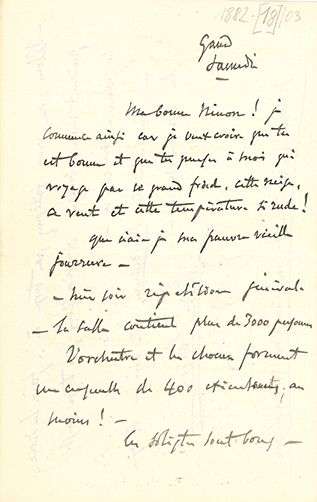 1882-[18]103
Gand
Samedi
Ma bonne Ninon! je
commence ainsi car je veux croire que tu
est bonne et que tu penses à moi qui
voyage par ce grand froid, cette neige,
ce vent et cette température si rude!
que n'ai-je ma pauvre vieille
fourrure —
— hier soir répétition générale
— La salle contient plus de 3000 personnes
L'orchestre et les choeurs forment
un ensemble de 400 exécutants, au
moins! —
les solistes sont bons —